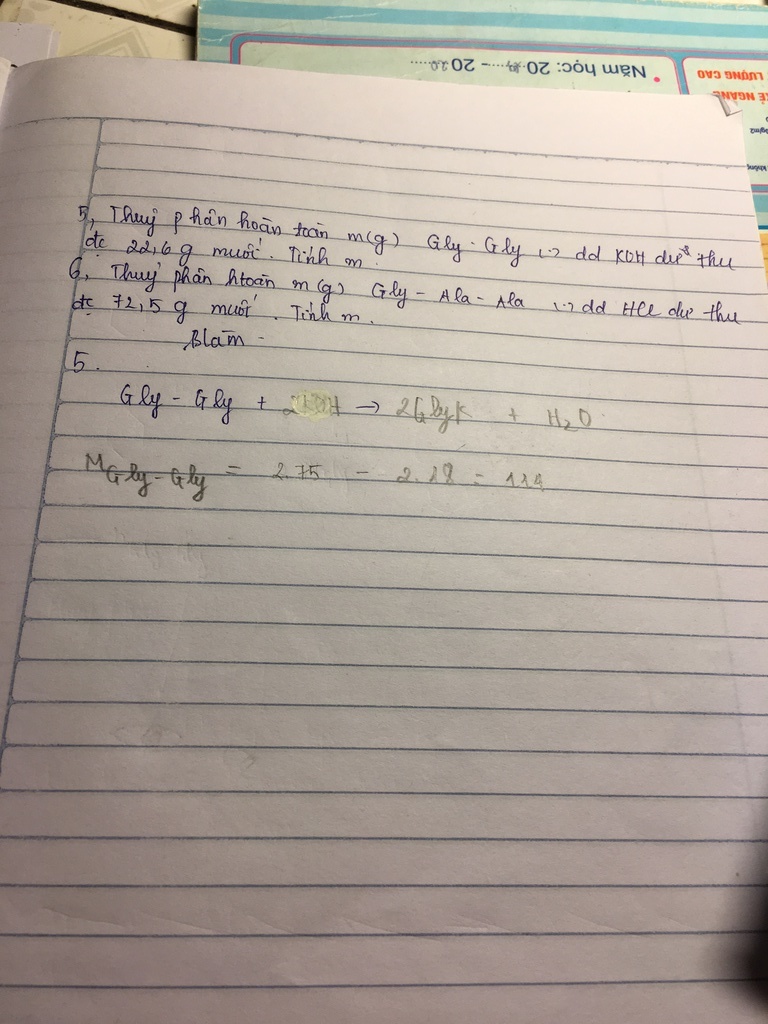 • Năm học: 20.19....- 20 20.....
LƯỢNG CAO
KẺ NGANG
5, Thuỷ phân hoàn toàn m(g) Gly - Gly (-) dd KOH dư thu
đc 22,6 g muối. Tính m.
6, Thuỷ phân htoàn m(g) Gly - Ala - Ala (-) dd HCl dư thu
đc 72,5 g muối. Tính m.
Blàm -
5.
Gly - Gly + 2KOH → 2GlyK + H2O
M Gly - Gly = 2.75 - 2.18 = 114